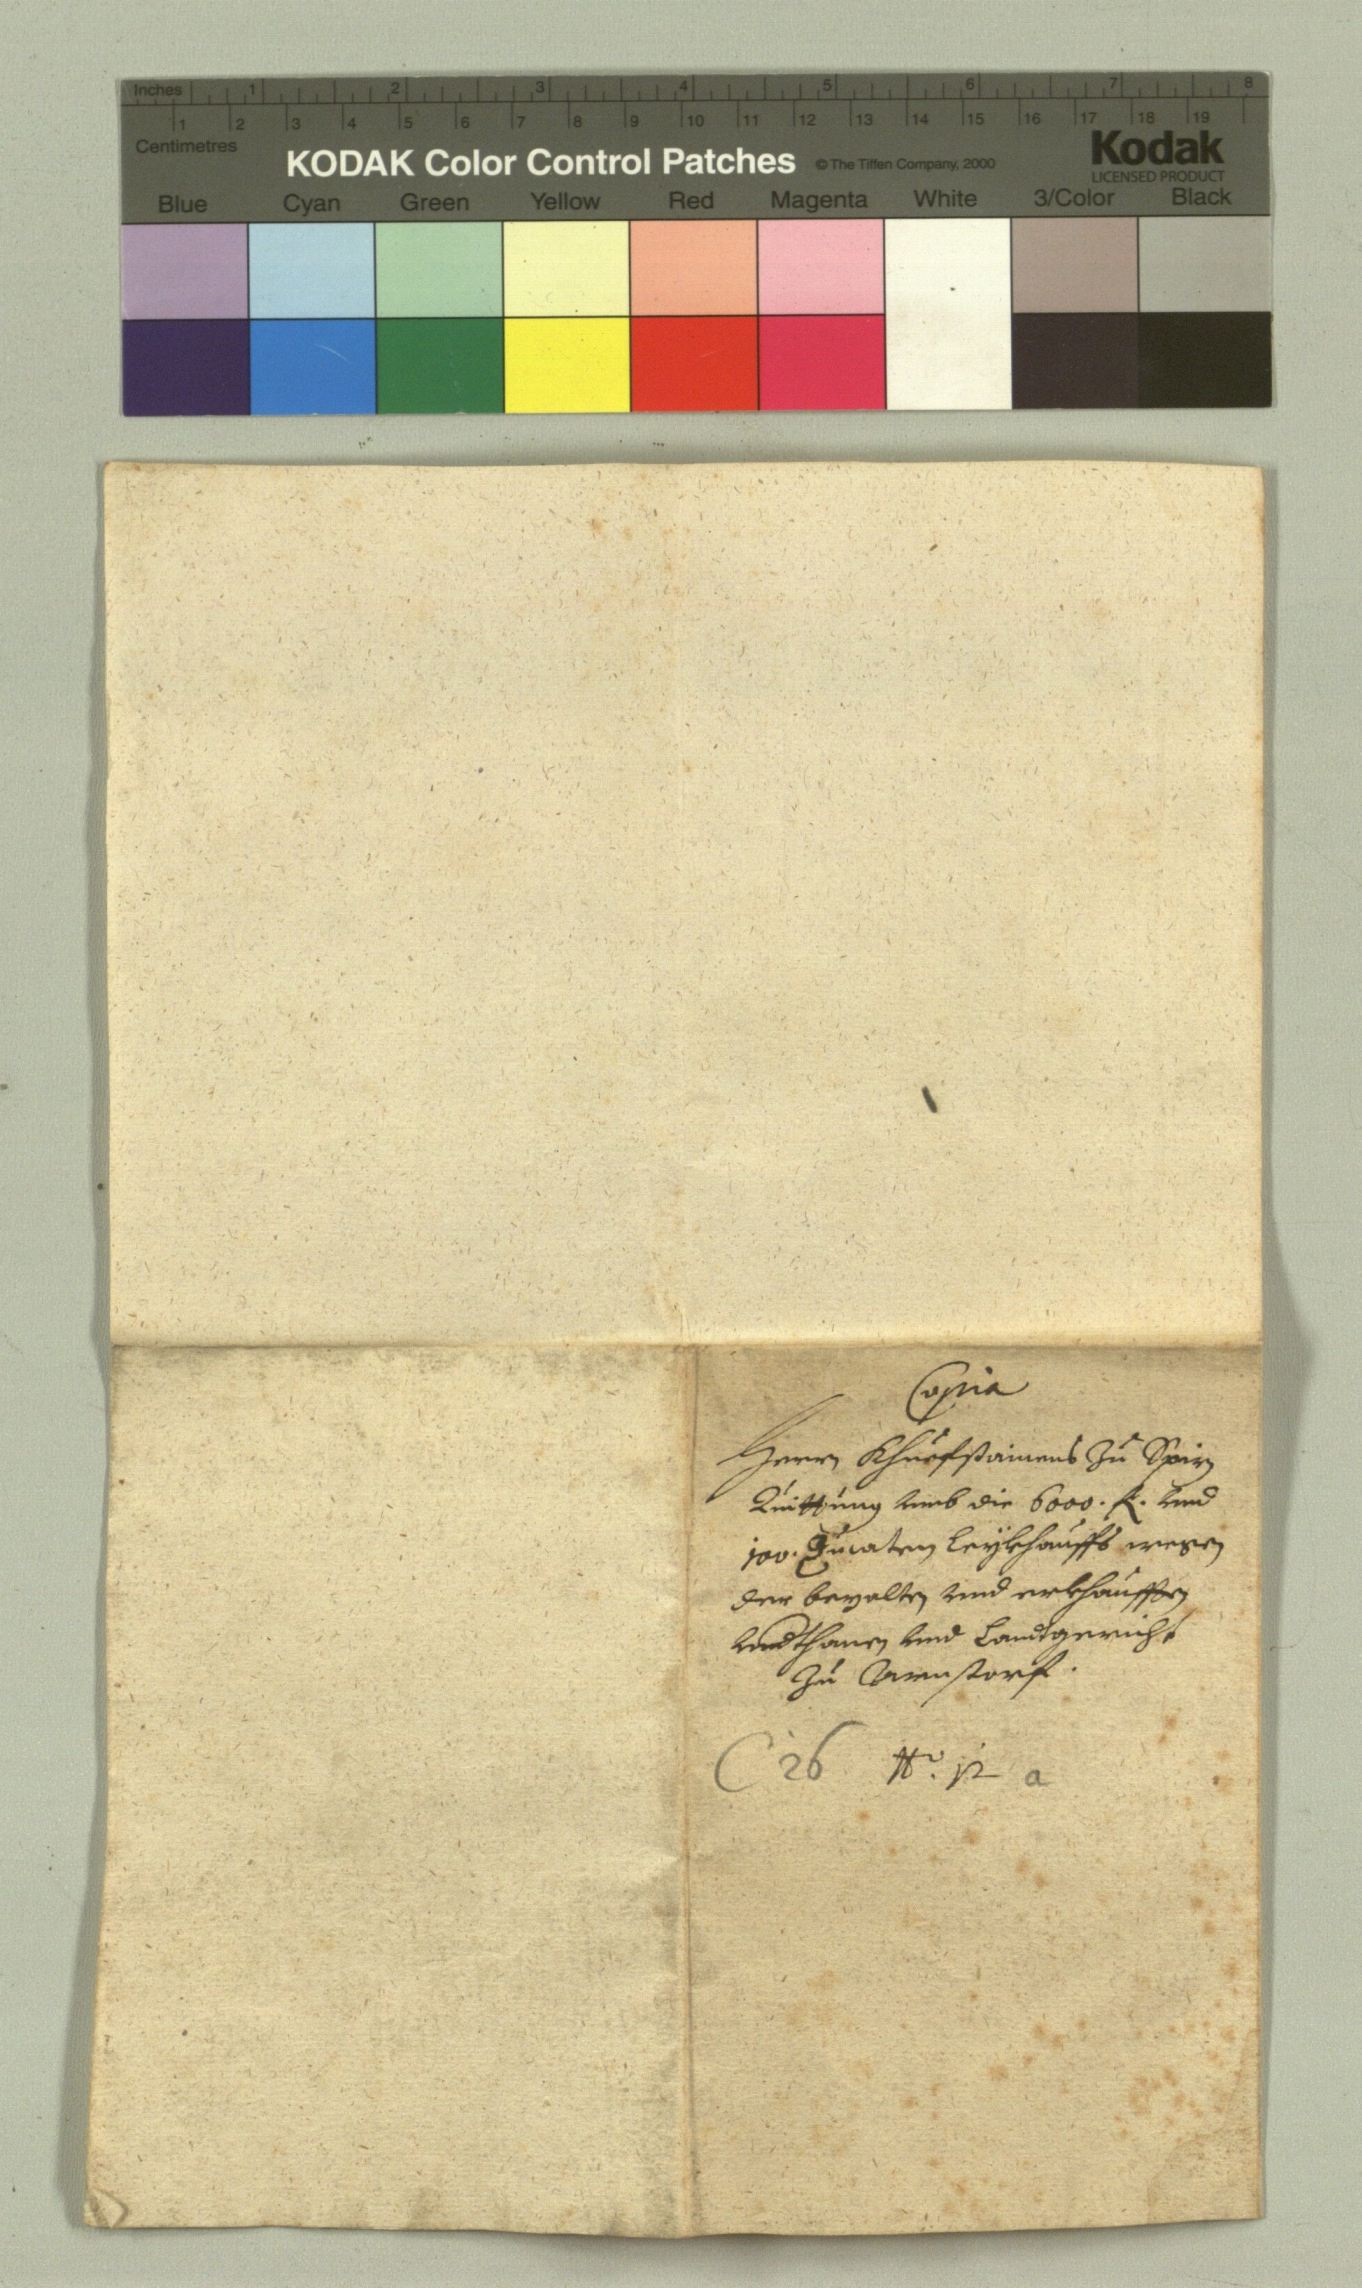 Inches 1 2 3 4 5 6 7 8
1 2 3 4 5 6 7 8 9 10 11 12 13 14 15 16 17 18 19
Centimetres
KODAK Color Control Patches © The Tiffen Company, 2000
Kodak
LICENSED PRODUCT
Blue Cyan Green Yellow Red Magenta White 3/Color Black
Copia
Herrn Khuefstainers Zu Spiz
Quittung umb die 6000. f. und
100. Ducaten Leÿkhauffs wegen
der bezalten und erkhaufften
undthanen und Landtgericht
Zu
C 26 No. 12 a